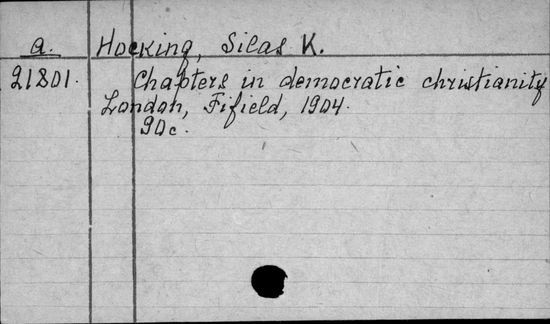 a. Hocking, Silas K.
21801. Chapters in democratic christianity
London, Fifield, 1904.
90c.